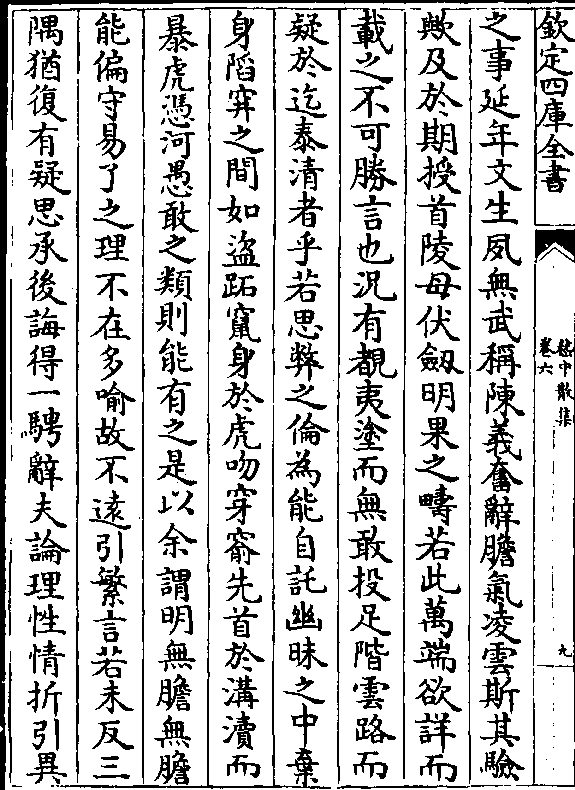 欽定四庫全書
嵇中散集
卷六
九
之事延年文生夙無武稱陳義奮辭膽氣凌雲斯其驗
歟及於期授首陵母伏劍明果之疇若此萬端欲詳而
載之不可勝言也況有覩夷塗而無敢投足階雲路而
疑於迄泰清者乎若思弊之倫為能自託幽昧之中棄
身陷穽之間如盜跖竄身於虎吻穿窬先首於溝瀆而
暴虎憑河愚敢之類則能有之是以余謂明無膽無膽
能偏守易了之理不在多喻故不遠引繁言若未反三
隅猶復有疑思承後誨得一騁辭夫論理性情折引異